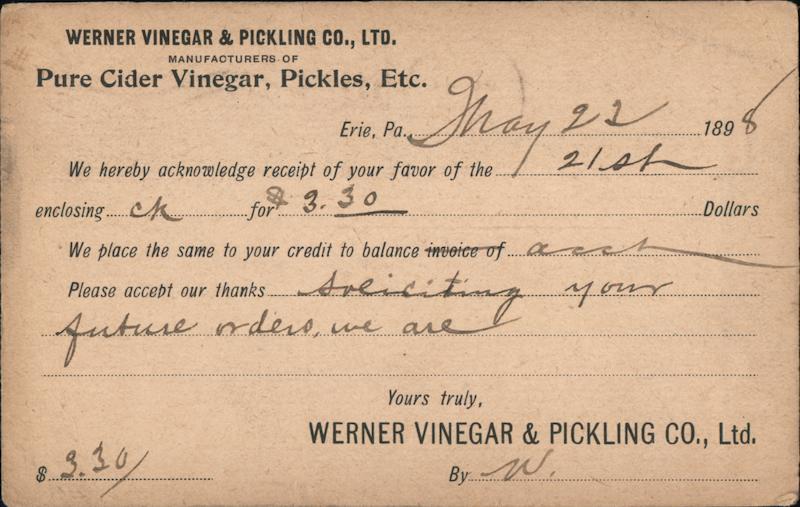 WERNER VINEGAR & PICKLING CO., LTD.
MANUFACTURERS OF
Pure Cider Vinegar, Pickles, Etc.
Erie, Pa. May 23 1898
We hereby acknowledge receipt of your favor of the 21st
enclosing ck for $ 3.30 Dollars
We place the same to your credit to balance invoice of acct
Please accept our thanks soliciting your
future orders, we are
Yours truly,
WERNER VINEGAR & PICKLING CO., Ltd.
$ 3.30/ By W.